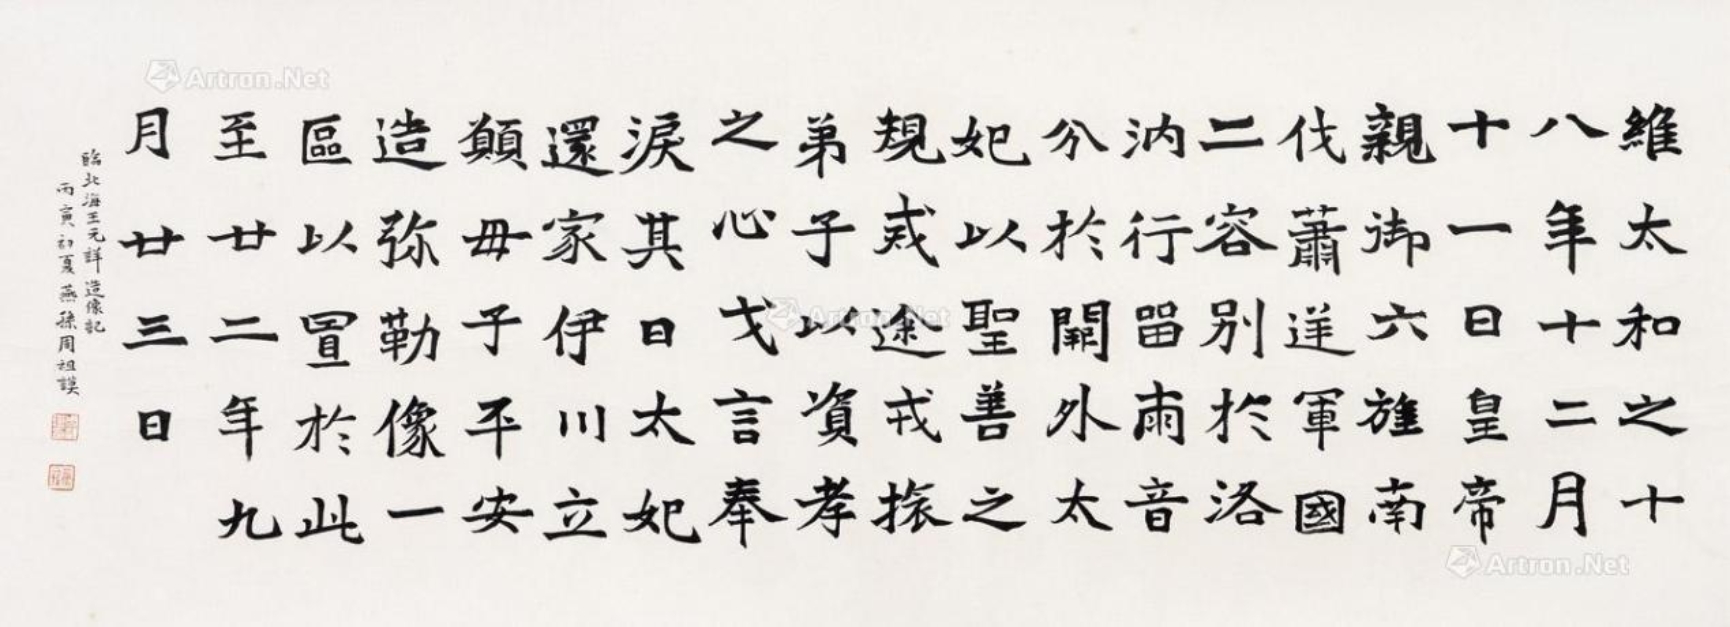 維太和之十
八年十二月
十一日皇帝
親御六旌南
伐蕭逆軍國
二容別於洛
汭行留兩音
分於闈外太
妃以聖善之
規戒途戎振
弟子以資孝
之心戈言奉
淚其日太妃
還家伊川立
願毋子平安
造弥勒像一
區以置於此
至廿二年九
月廿三日
臨北海王元詳造像記
丙寅初夏燕孫周祖謨
Artron.Net
Artron.Net
Artron.Net